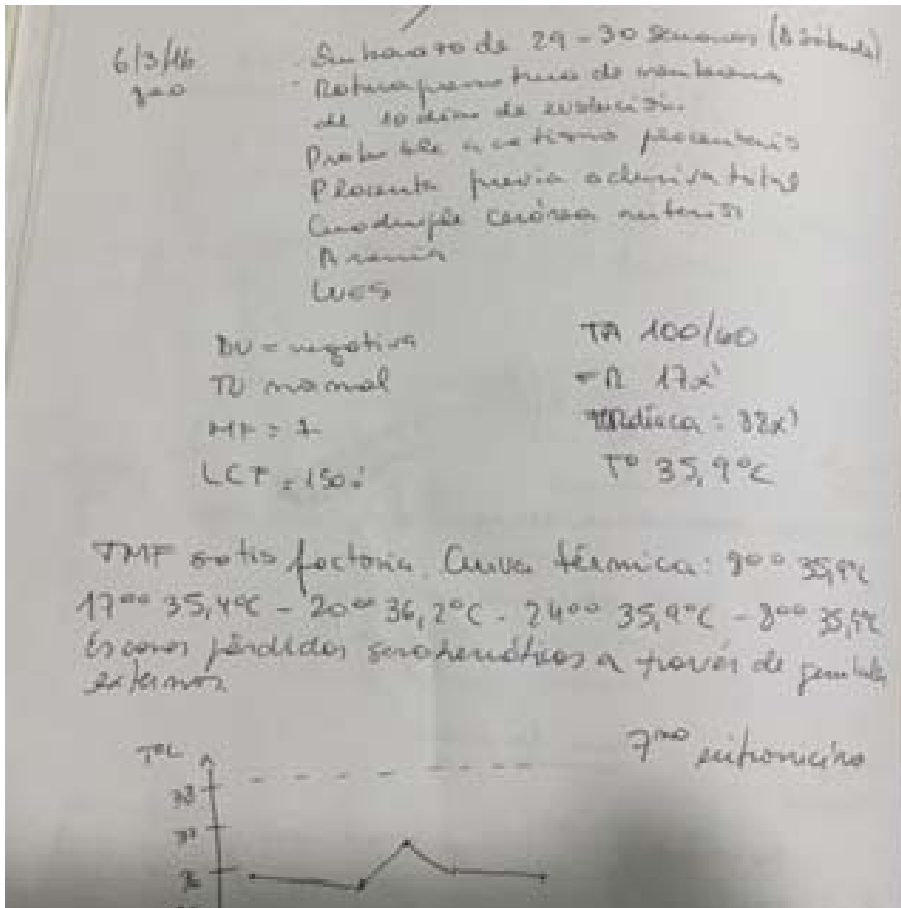 6/3/16 Embarazo de 29-30 semanas (
Rotura prematura de membrana
de 10 días de evolución.
Probable acretismo placentario
Placenta previa oclusiva total
Cuadruple cesárea anterior
Anemia
LUES
DU = negativa TA 100/60
TU normal FR 17x'
MF = 1 cardíaca:
LCF = 150 T° 35,9°C
TMF satisfactoria. Curva térmica: 35,9°C
17°° 35,4°C - 20°° 36,2°C - 24°° 35,9°C - 8°°
Escasas pérdidas serohemáticas a través de genitales
externos
T°C 7mo eritromicina
38
37
36